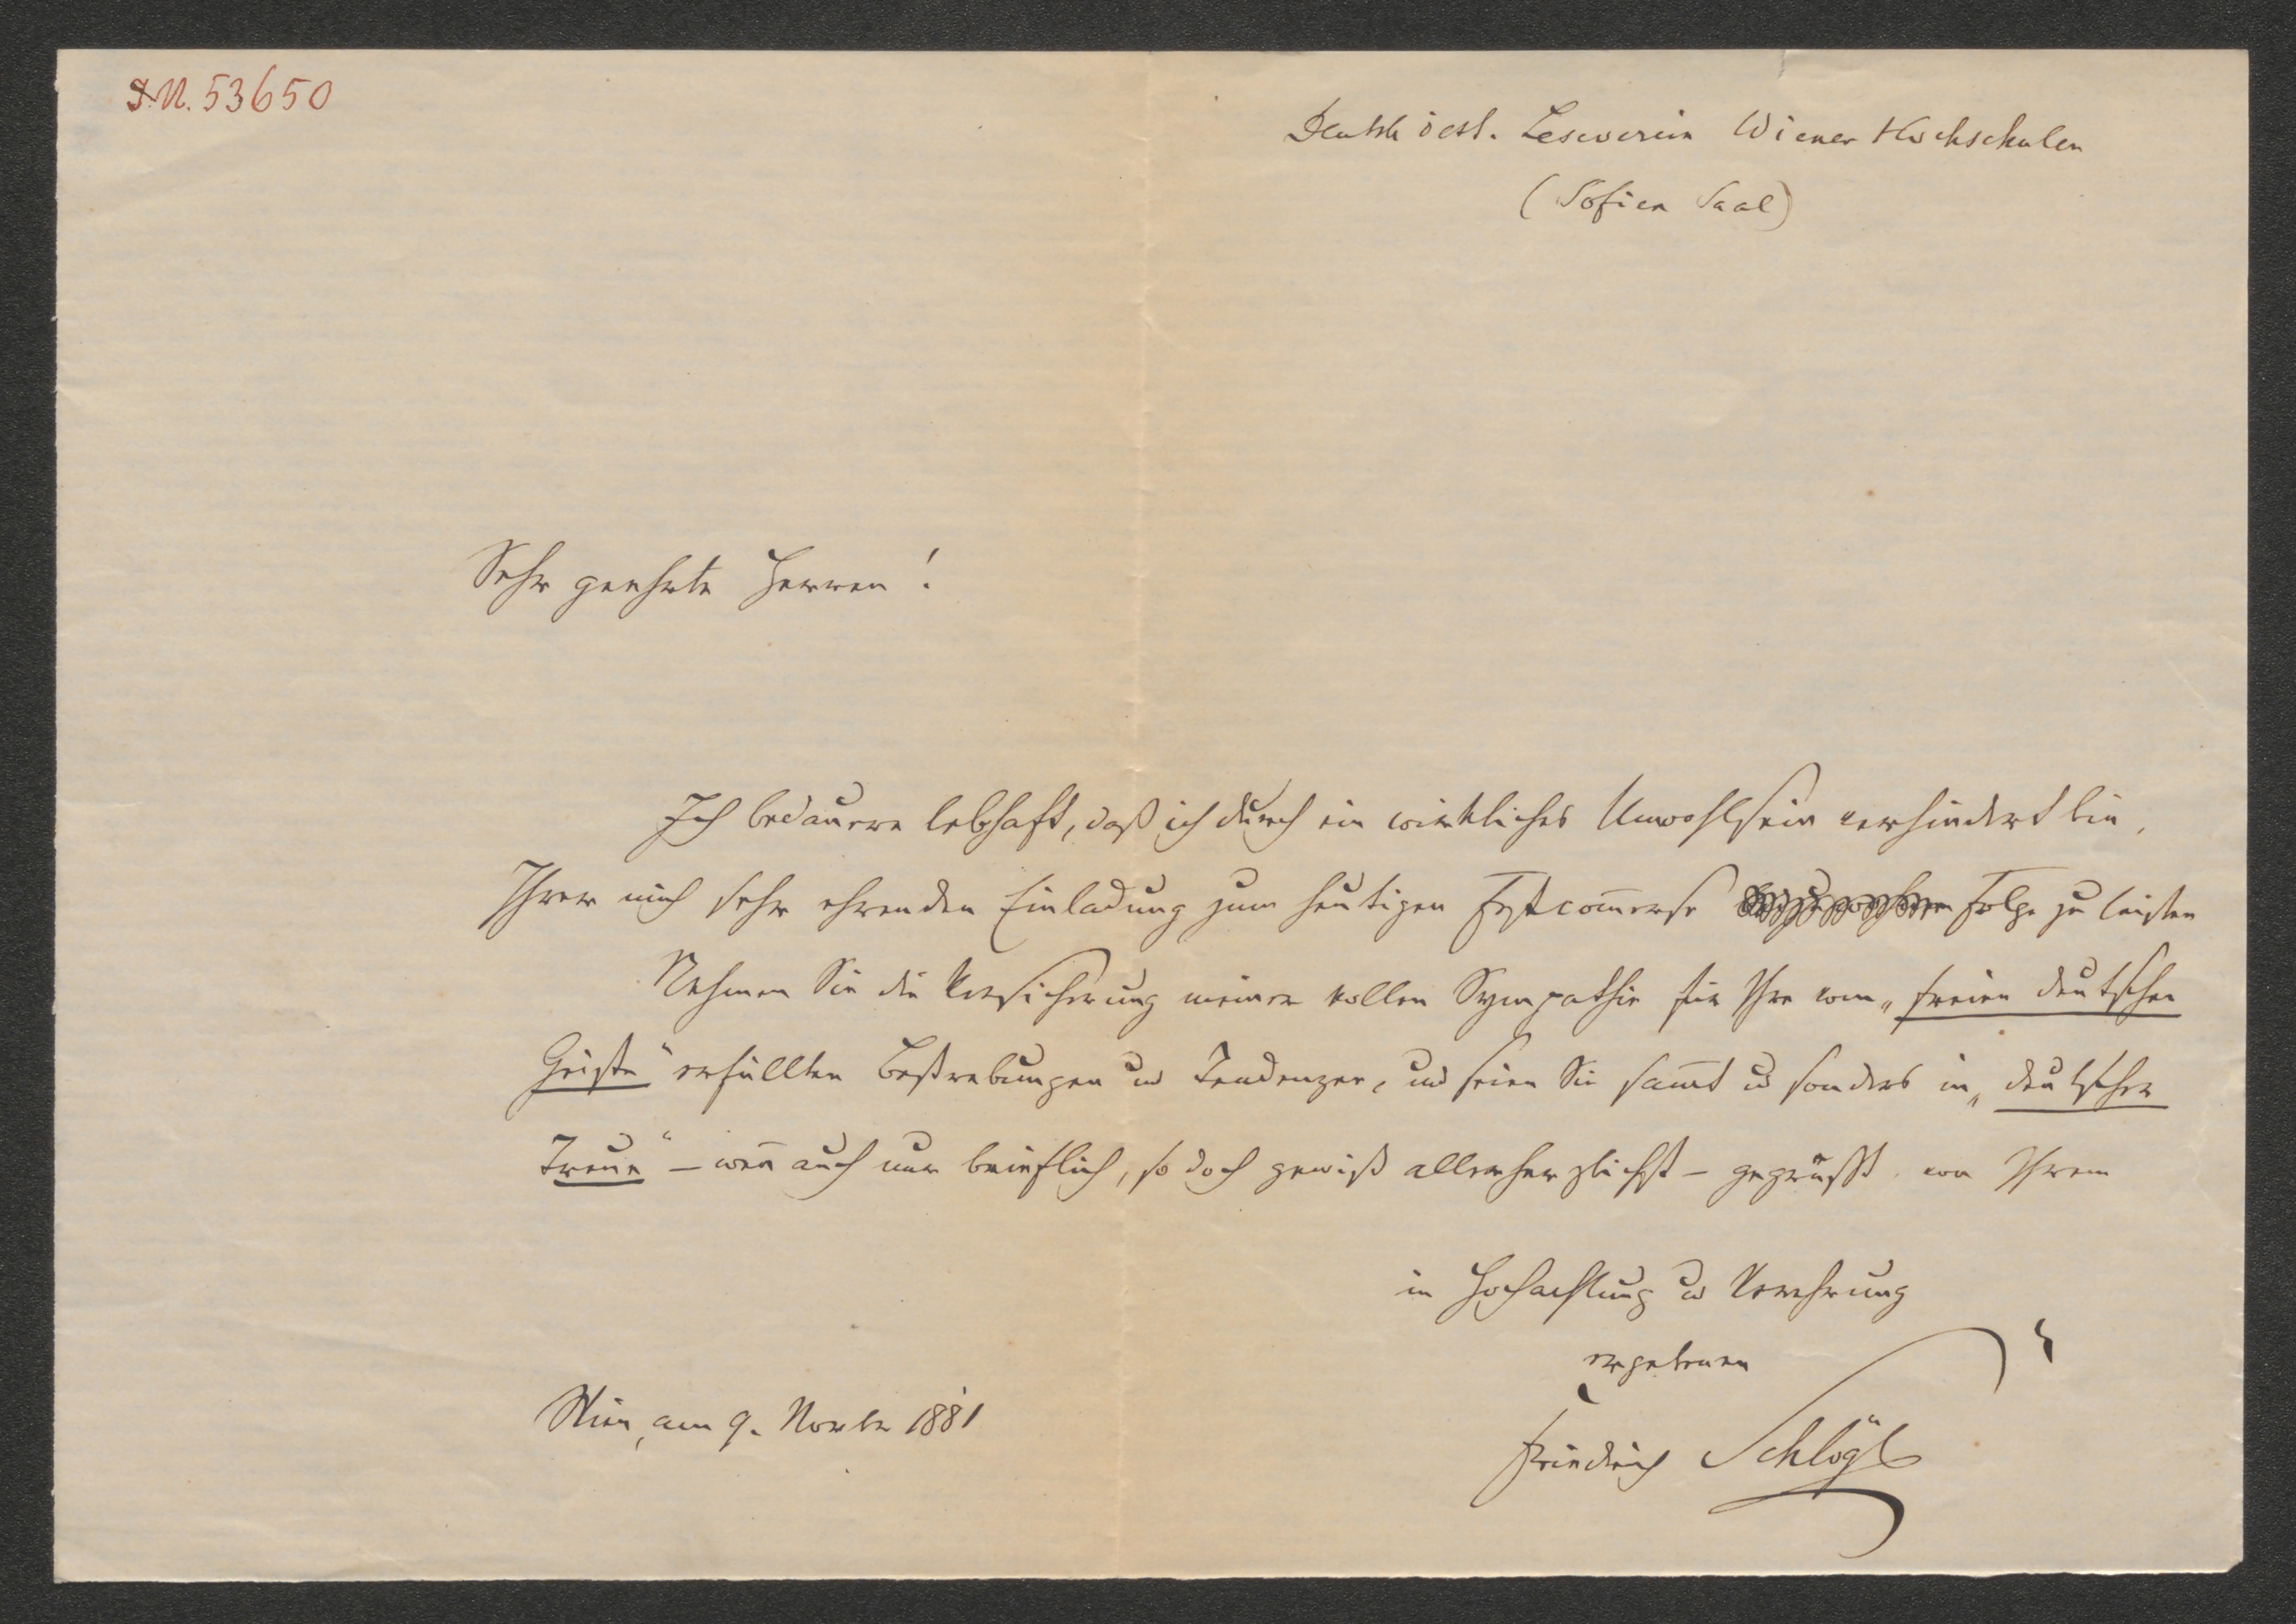 I.N. 53650
Deutsch öst. Leseverein Wiener Hochschulen
(Sofien Saal)
Sehr geehrte Herren!
Ich bedauere lebhaft, daß ich durch ein wirkliches Unwohlsein verhindert bin,
Ihrer mich sehr ehrenden Einladung zum heutigen Festcom̅erse Folge zu leisten
Nehmen Sie die Versicherung meiner vollen Sympathie für Ihre vom „freien deutschen
Geiste“ erfüllten Bestrebungen und Tendenzen, und seien Sie sam̅t u sonders in „deutscher
Treue“ – wen̅ auch nur brieflich, so doch gewiß allerherzlichst – gegrüßt von Ihrem
in Hochachtung u Verehrung
ergebenen
Wien, am 9. Novbr 1881
Friedrich Schlögl